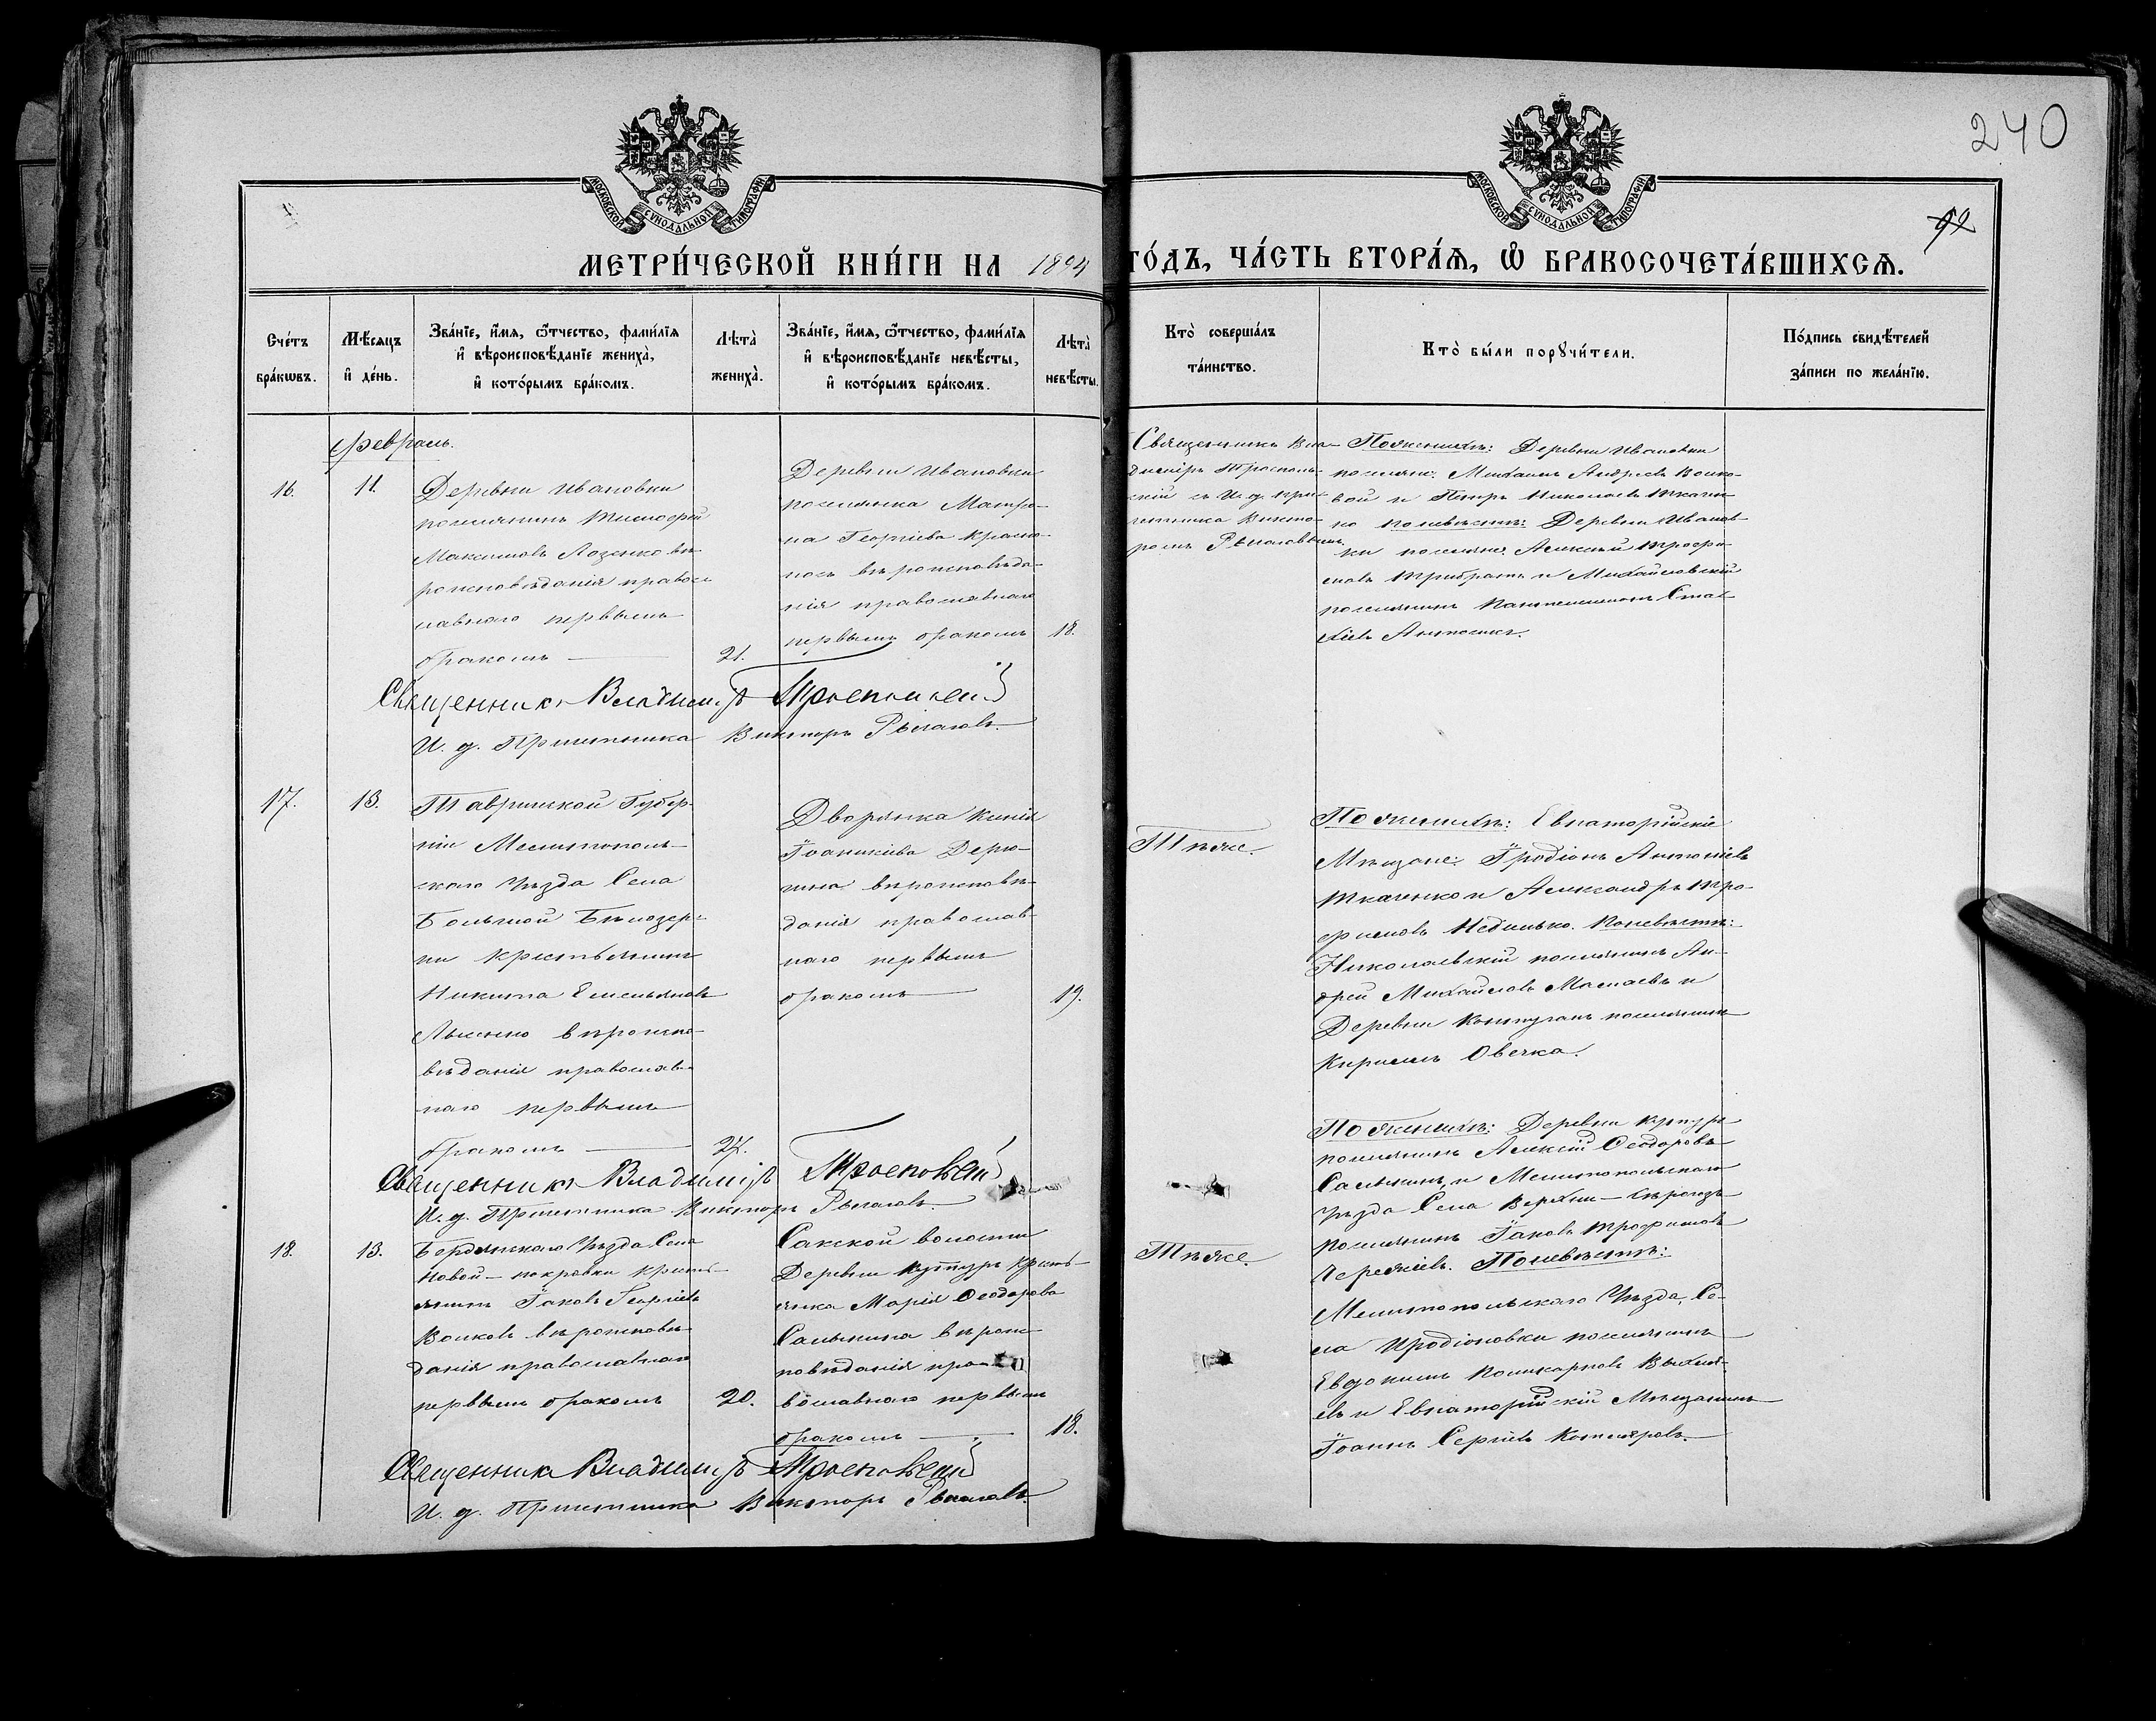 240
92
МОСКОВСКОЙ СѴНОДАЛЬНОЙ ТИПОГРАФІИ
МОСКОВСКОЙ СѴНОДАЛЬНОЙ ТИПОГРАФІИ
МЕТРИ́ЧЕСКОЙ КНИ́ГИ НА 1894 ГО́ДЪ, ЧА́СТЬ ВТОРА́Я, Ѿ БРАКОСОЧЕТА́ВШИХСЯ.
Сче́тъ бра́кѡвъ.
Мѣ́сяцъ и҆ де́нь.
Зва́нїе, и҆́мя, ѻ҆́тчество, фами́лїя и҆ вѣроисповѣ́данїе жениха̀, и҆ кото́рымъ бра́комъ.
Лѣта̀ жениха̀.
Зва́нїе, и҆́мя, ѻ҆́тчество, фами́лїя и҆ вѣроисповѣ́данїе невѣ́сты, и҆ кото́рымъ бра́комъ.
Лѣта̀ невѣ́сты.
Кто̀ соверша́лъ та́инство.
Кто̀ бы́ли порꙋчи́тели.
По́дпись свидѣ́телей за́писи по жела́нїю.
Февраль.
16.
11.
Деревни Ивановки
поселянинъ Тимофей
Максимовъ Лозенко вѣ-
роисповѣданія правос-
лавнаго первымъ
бракомъ
21.
Деревни Ивановки
поселянка Матро-
на Георгіева Красно-
носъ вѣроисповѣда-
нія православнаго
первымъ бракомъ
18.
Священникъ Вла-
диміръ Троеполь-
скій съ И. д. при-
четника Викто-
ромъ
По женихѣ: Деревни Ивановки
поселяне: Михаилъ Андреевъ Волко-
вой и Петръ Николаевъ Ткачен-
ко по невѣстѣ: Деревни Иванов-
ки поселяне Алексѣй Трофи-
мовъ и Михайловскій
поселянинъ Пантелеимонъ Ста-
хіевъ
Священникъ Владиміръ Троепольскій
И. д. Причетника Викторъ
17.
13.
Таврической Губер-
ніи Мелитополь-
скаго Уѣзда Села
Большой Бѣлозер-
ки крестьянинъ
Никита Емельяновъ
Лысенко вѣроиспо-
вѣданія православ-
наго первымъ
бракомъ
24.
Дворянка Ксенія
Іоанникіева Дерю-
гина вѣроисповѣ-
данія православ-
наго первымъ
бракомъ
19.
Тѣже.
По женихѣ: Евпаторійскіе
Мѣщане: Иродіонъ Антоніевъ
Ткаченко и Александръ Тро-
фимовъ Недилько. По невѣстѣ:
Николаевскій поселянинъ Ан-
дрей Михайловъ Маслаевъ и
Деревни Контуганъ поселянинъ
Кириллъ Овечка.
Священникъ Владиміръ Троепольскій
И. д. Причетника Викторъ
18.
13.
Бердянскаго Уѣзда Села
Новой-покровки крестья-
янинъ Іаковъ Георгіевъ
Волковъ вѣроисповѣ-
данія православнаго
первымъ бракомъ
20.
Сакской волости
Деревни крестъ-
янка Марія Ѳеодорова
Салынина вѣроис-
повѣданія пра-
вославнаго первымъ
бракомъ
18.
Тѣже.
По женихѣ: Деревни
поселянинъ Алексій Ѳеодоровъ
Салынинъ, и Мелитопольскаго
Уѣзда Села Верхни-Сѣрогозъ
поселянинъ Іаковъ Трофимовъ
По невѣстѣ:
Мелитопольскаго Уѣзда, Се-
ла Иродіоновки поселянинъ
Евдокимъ Поликарповъ
и Евпаторійскій Мѣщанинъ
Іоаннъ Сергіевъ Котляровъ.
Священникъ Владиміръ Троепольскій
И. д. Причетника Викторъ